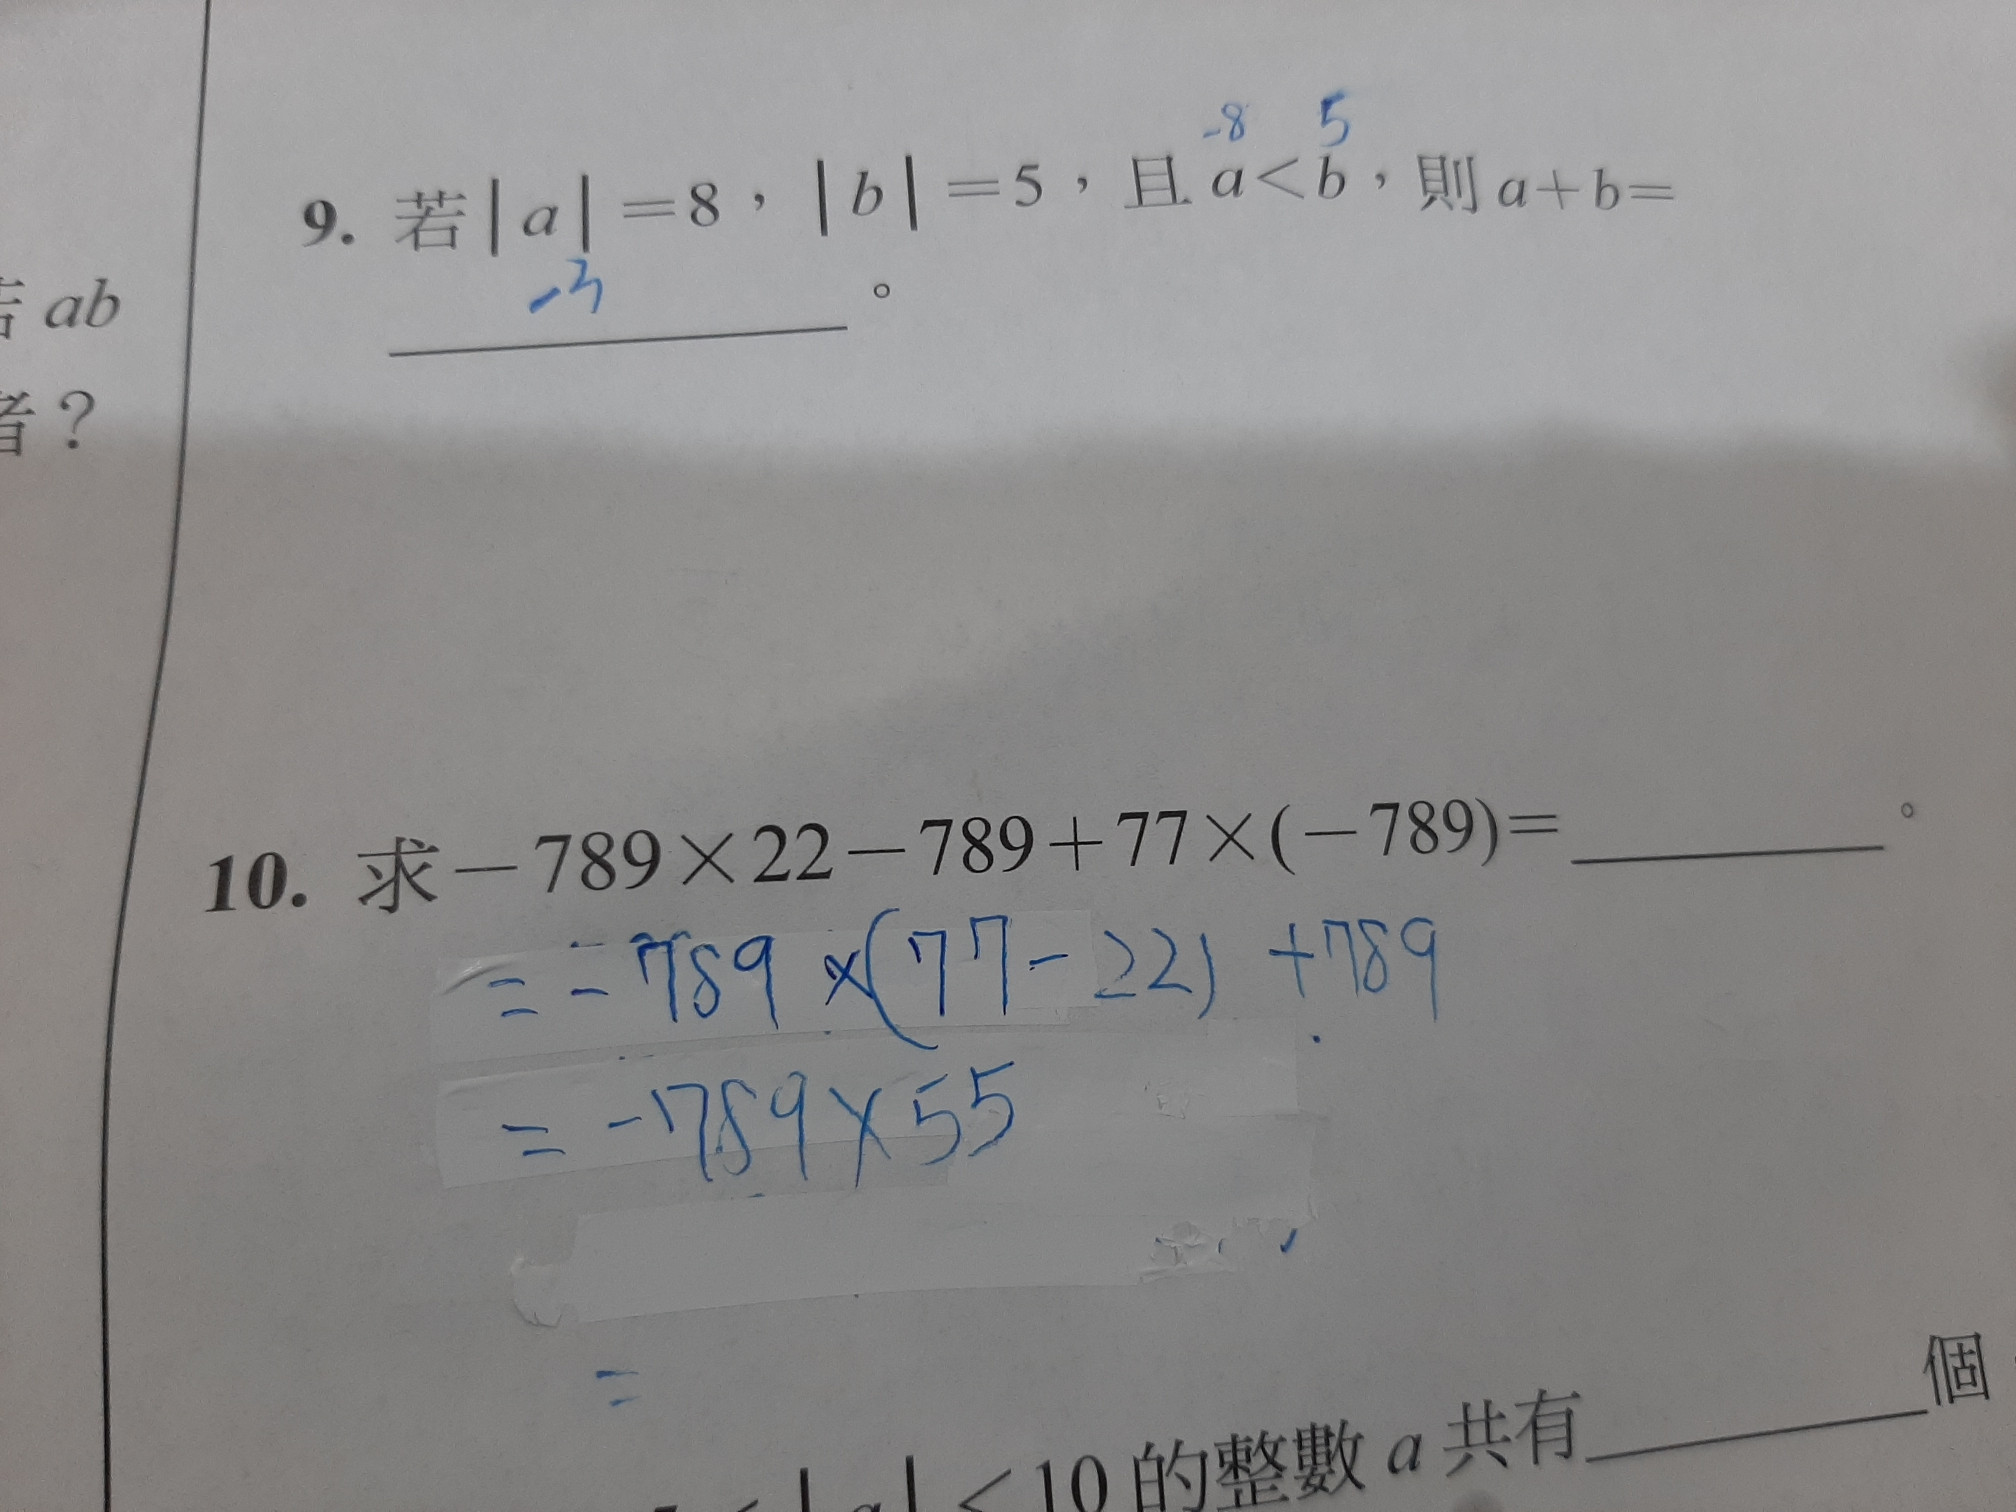 ab
者?
-8 5
9. 若|a|=8,|b|=5,且a<b,則a+b=
-3 。
10. 求-789×22-789+77×(-789)= 。
= -789 ×(77-22) +789
= -789×55
=
<|a|<10的整數a共有 個